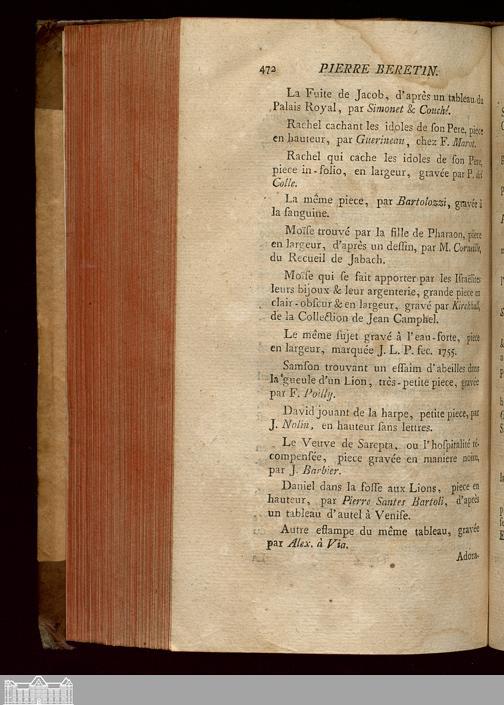 472 PIERRE BERETIN.
La Fuite de Jacob, d'après un tableau du
Palais Royal, par Simonet & Couché.
Rachel cachant les idoles de ſon Pere, piece
en hauteur, par Guerineau, chez F. Marot.
Rachel qui cache les idoles de ſon Pere,
piece in-folio, en largeur, gravée par P. del
Colle.
La même piece, par Bartolozzi, gravée à
la ſanguine.
Moïſe trouvé par la fille de Pharaon, piece
en largeur, d'après un deſſin, par M. Corneille,
du Recueil de Jabach.
Moïſe qui ſe fait apporter par les Iſraélites
leurs bijoux & leur argenterie, grande piece en
clair-obſcur & en largeur, gravé par Kirckhall,
de la Collection de Jean Camphel.
Le même ſujet gravé à l'eau-forte, piece
en largeur, marquée J. L. P. fec. 1755.
Samſon trouvant un eſſaim d'abeilles dans
la gueule d'un Lion, très-petite piece, gravée
par F. Poilly.
David jouant de la harpe, petite piece, par
J. Nolin, en hauteur ſans lettres.
Le Veuve de Sarepta, ou l'hoſpiralité ré-
compenſée, piece gravée en maniere noire,
par J. Barbier.
Daniel dans la foſſe aux Lions, piece en
hauteur, par Pierre Santes Bartoli, d'après
un tableau d'autel à Veniſe.
Autre eſtampe du même tableau, gravée
par Alex. à Via.
Adora-